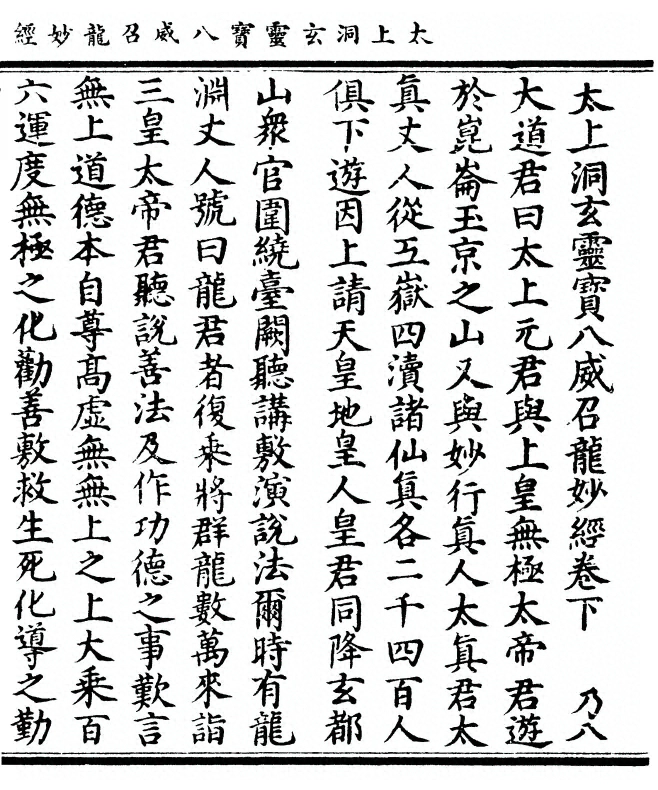 太上洞玄靈寶八威召龍妙經
太上洞玄靈寶八威召龍妙經卷下 乃八
大道君曰太上元君與上皇無極太帝君遊
於崑崙玉京之山又與妙行眞人太眞君太
眞丈人從五嶽四瀆諸仙眞各二千四百人
俱下遊因上請天皇地皇人皇君同降玄都
山衆官圍繞臺闕聽講敷演說法爾時有龍
淵丈人號曰龍君者復乘將群龍數萬來詣
三皇太帝君聽說善法及作功德之事歎言
無上道德本自尊髙虛無無上之上大乘百
六運度無極之化勸善敷救生死化導之勤